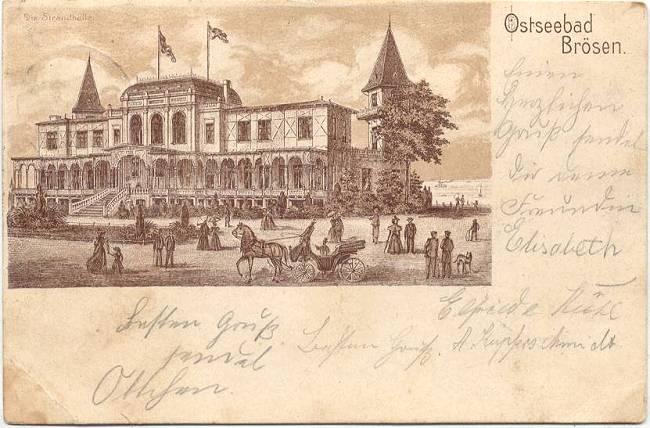 Die Strandhalle.
Ostseebad
Brösen.
Einen
herzlichen
Gruß sendet
Dir deine
Freundin
Elisabeth
Elfriede
A. Kupferschmidt
Besten Gruß
sendet
Ottchen.
Besten Gruß